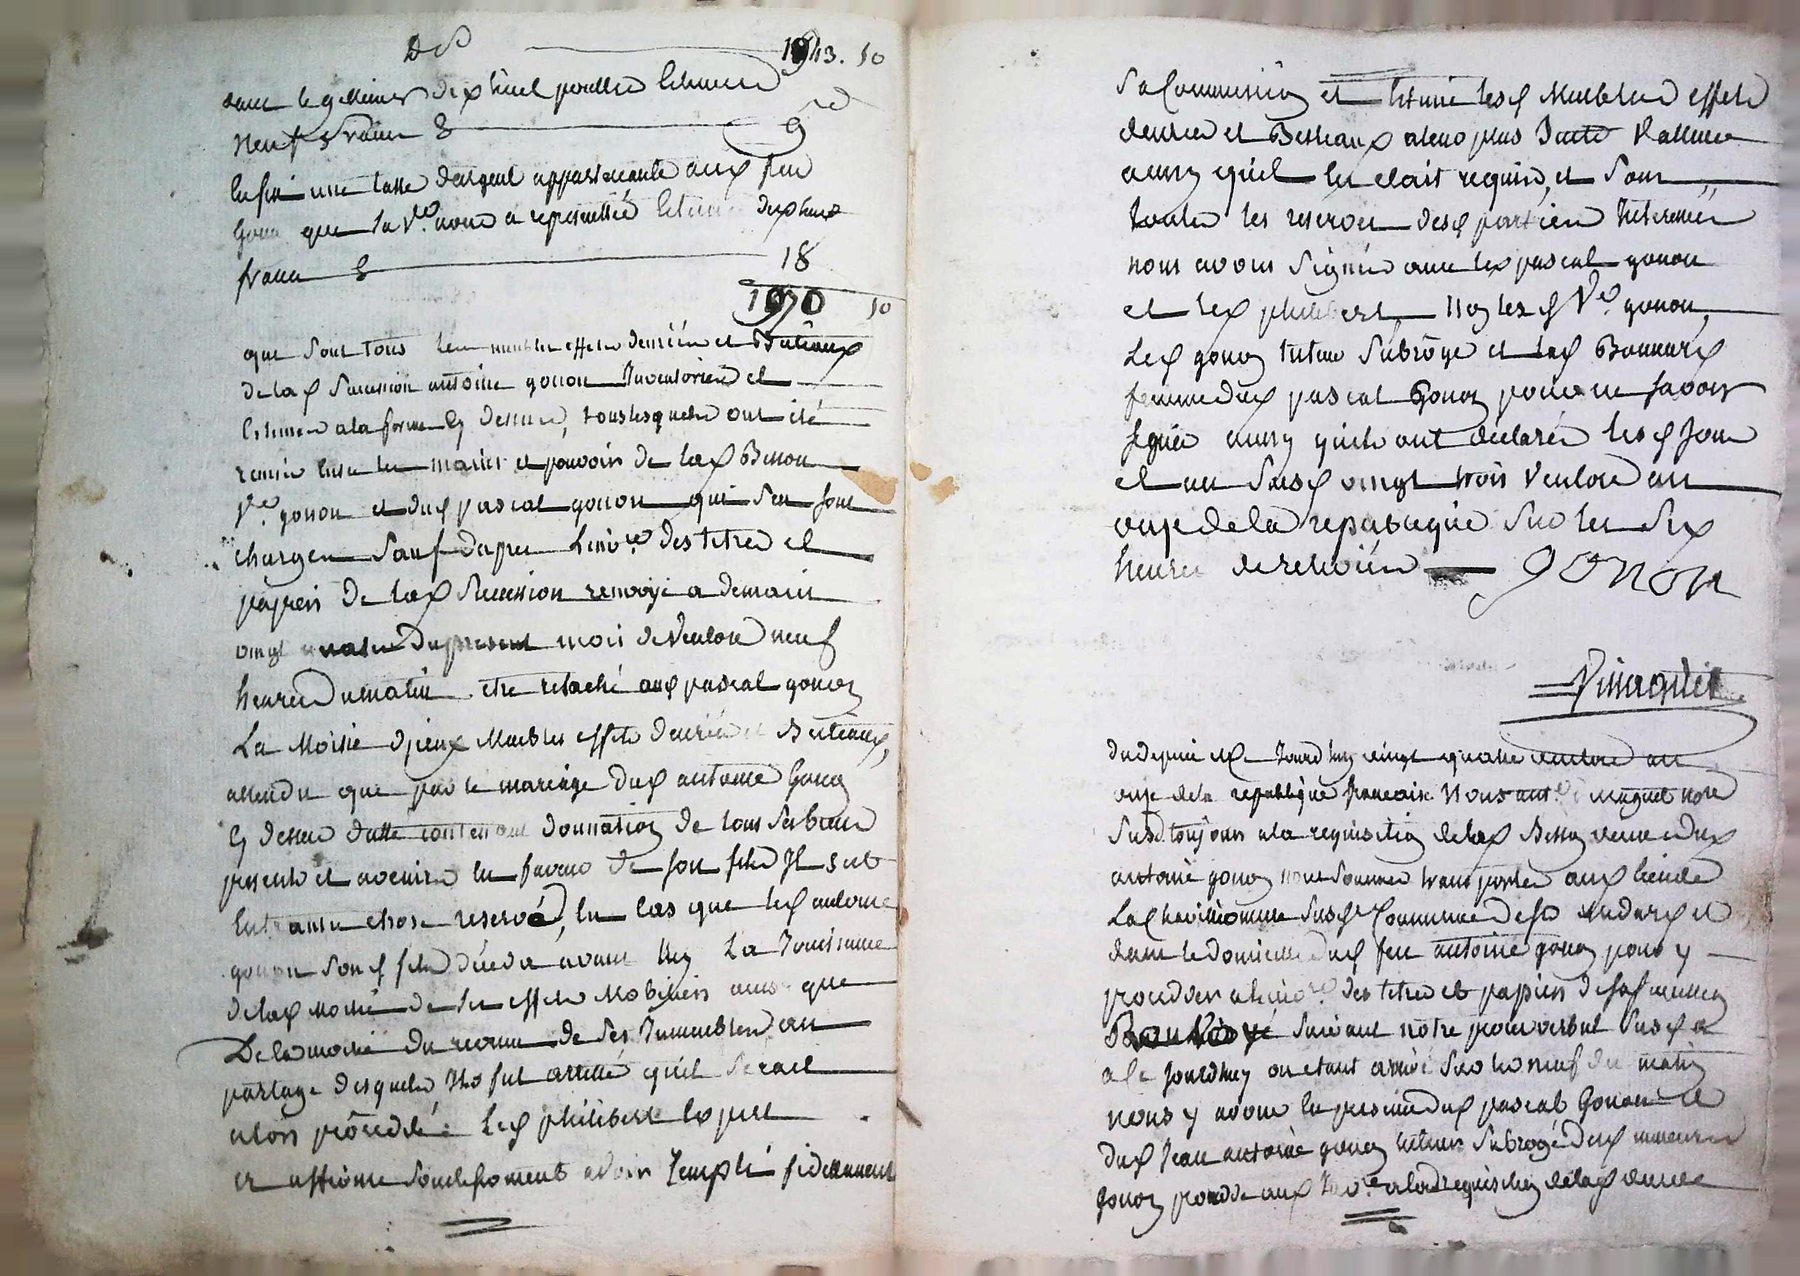 De 1943. 50
dans le gellinier dix huit poulles Estimées
neuf francs & 9
Enfin une tasse d'argent appartenante aux feu
Gonon que la Ve. nous a representée Estimée dix huit
francs & 18
1970 50
que sont tous les meubles effets denrées et Bestiaux
de la d succession antoine gonon Inventoriés et
Estimés a la forme Cy dessus, tous lesquels ont été
remis entre les mains et pouvoir de lad Besson
Ve. gonon et dud pascal gonon qui s'en sont
chargés sauf dapres Linvre. des titres et
papiers de lad Succession renvoyé a demain
vingt quatre du present mois de Ventose neuf
heures du matin etre relaché aud pascal gonon
La Moitié d'jceux Meubles effets denrées et Bestiaux,
attendu que par le mariage dud antoine Gonon
Cy dessus datté contenant donnation de tous ses biens
presents et avenirs en faveur de son fils Il s'est
Entrautre chose reservé, en cas que led antoine
gonon son d fils décéda avant luy La Jouissance
de lad moitié de ses effets Mobiliers ainsi que
De la moitié du revenu de ses Immeubles au
partage desquels Il fut arretté qu'il seroit
alors procédé: Led philibert expert
a affirmé sous serment avoir Rempli fidellement
Sa Commission et Estimé lesd Meubles effets
denrées et Bestiaux a leur plus Juste Valleur
ainsy qu'il en etait requis, et Sous
toutes les reserves desd parties Interessées
nous avons signé avec led pascal gonon
et led philibert, Non lesd Ve. gonon,
Led gonon tuteur Subrogé et lad Bonnard
femme dud pascal Gonon pour ne savoir
signer ainsy qu'ils ont déclaré lesd Jour
et an susd vingt trois Ventose an
onze de la republique sur les six
heures de relevée gonon
Du depuis et Jourd'huy vingt quatre ventose an
onze de la republique francaise Nous ant. Maguet nore
Susd toujours a la requisition de lad Besson veuve dud
antoine gonon nous sommes transportés aux lieu de
La Commune de St andard et
dans le domicille dud feu antoine gonon pour y
proceder a linvre. des titres et papiers de sa succession
Renvoyé suivant notre procès verbal susd a
a ce Jourdhuy ou etant arrivé sur les neuf du matin
nous y avons en presence dud pascal Gonon et
dud Jean antoine gonon tuteur Subrogé dud mineurs
gonon procédé aud Invre. a la requisition de lad veuve